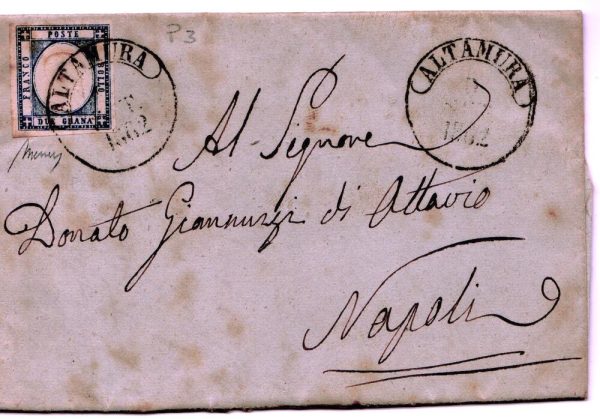 P3
POSTE
FRANCO
BOLLO
DUE GRANA
ALTAMURA
1862
ALTAMURA
1862
Al Signore
Donato Giannuzzi di Ottavio
Napoli